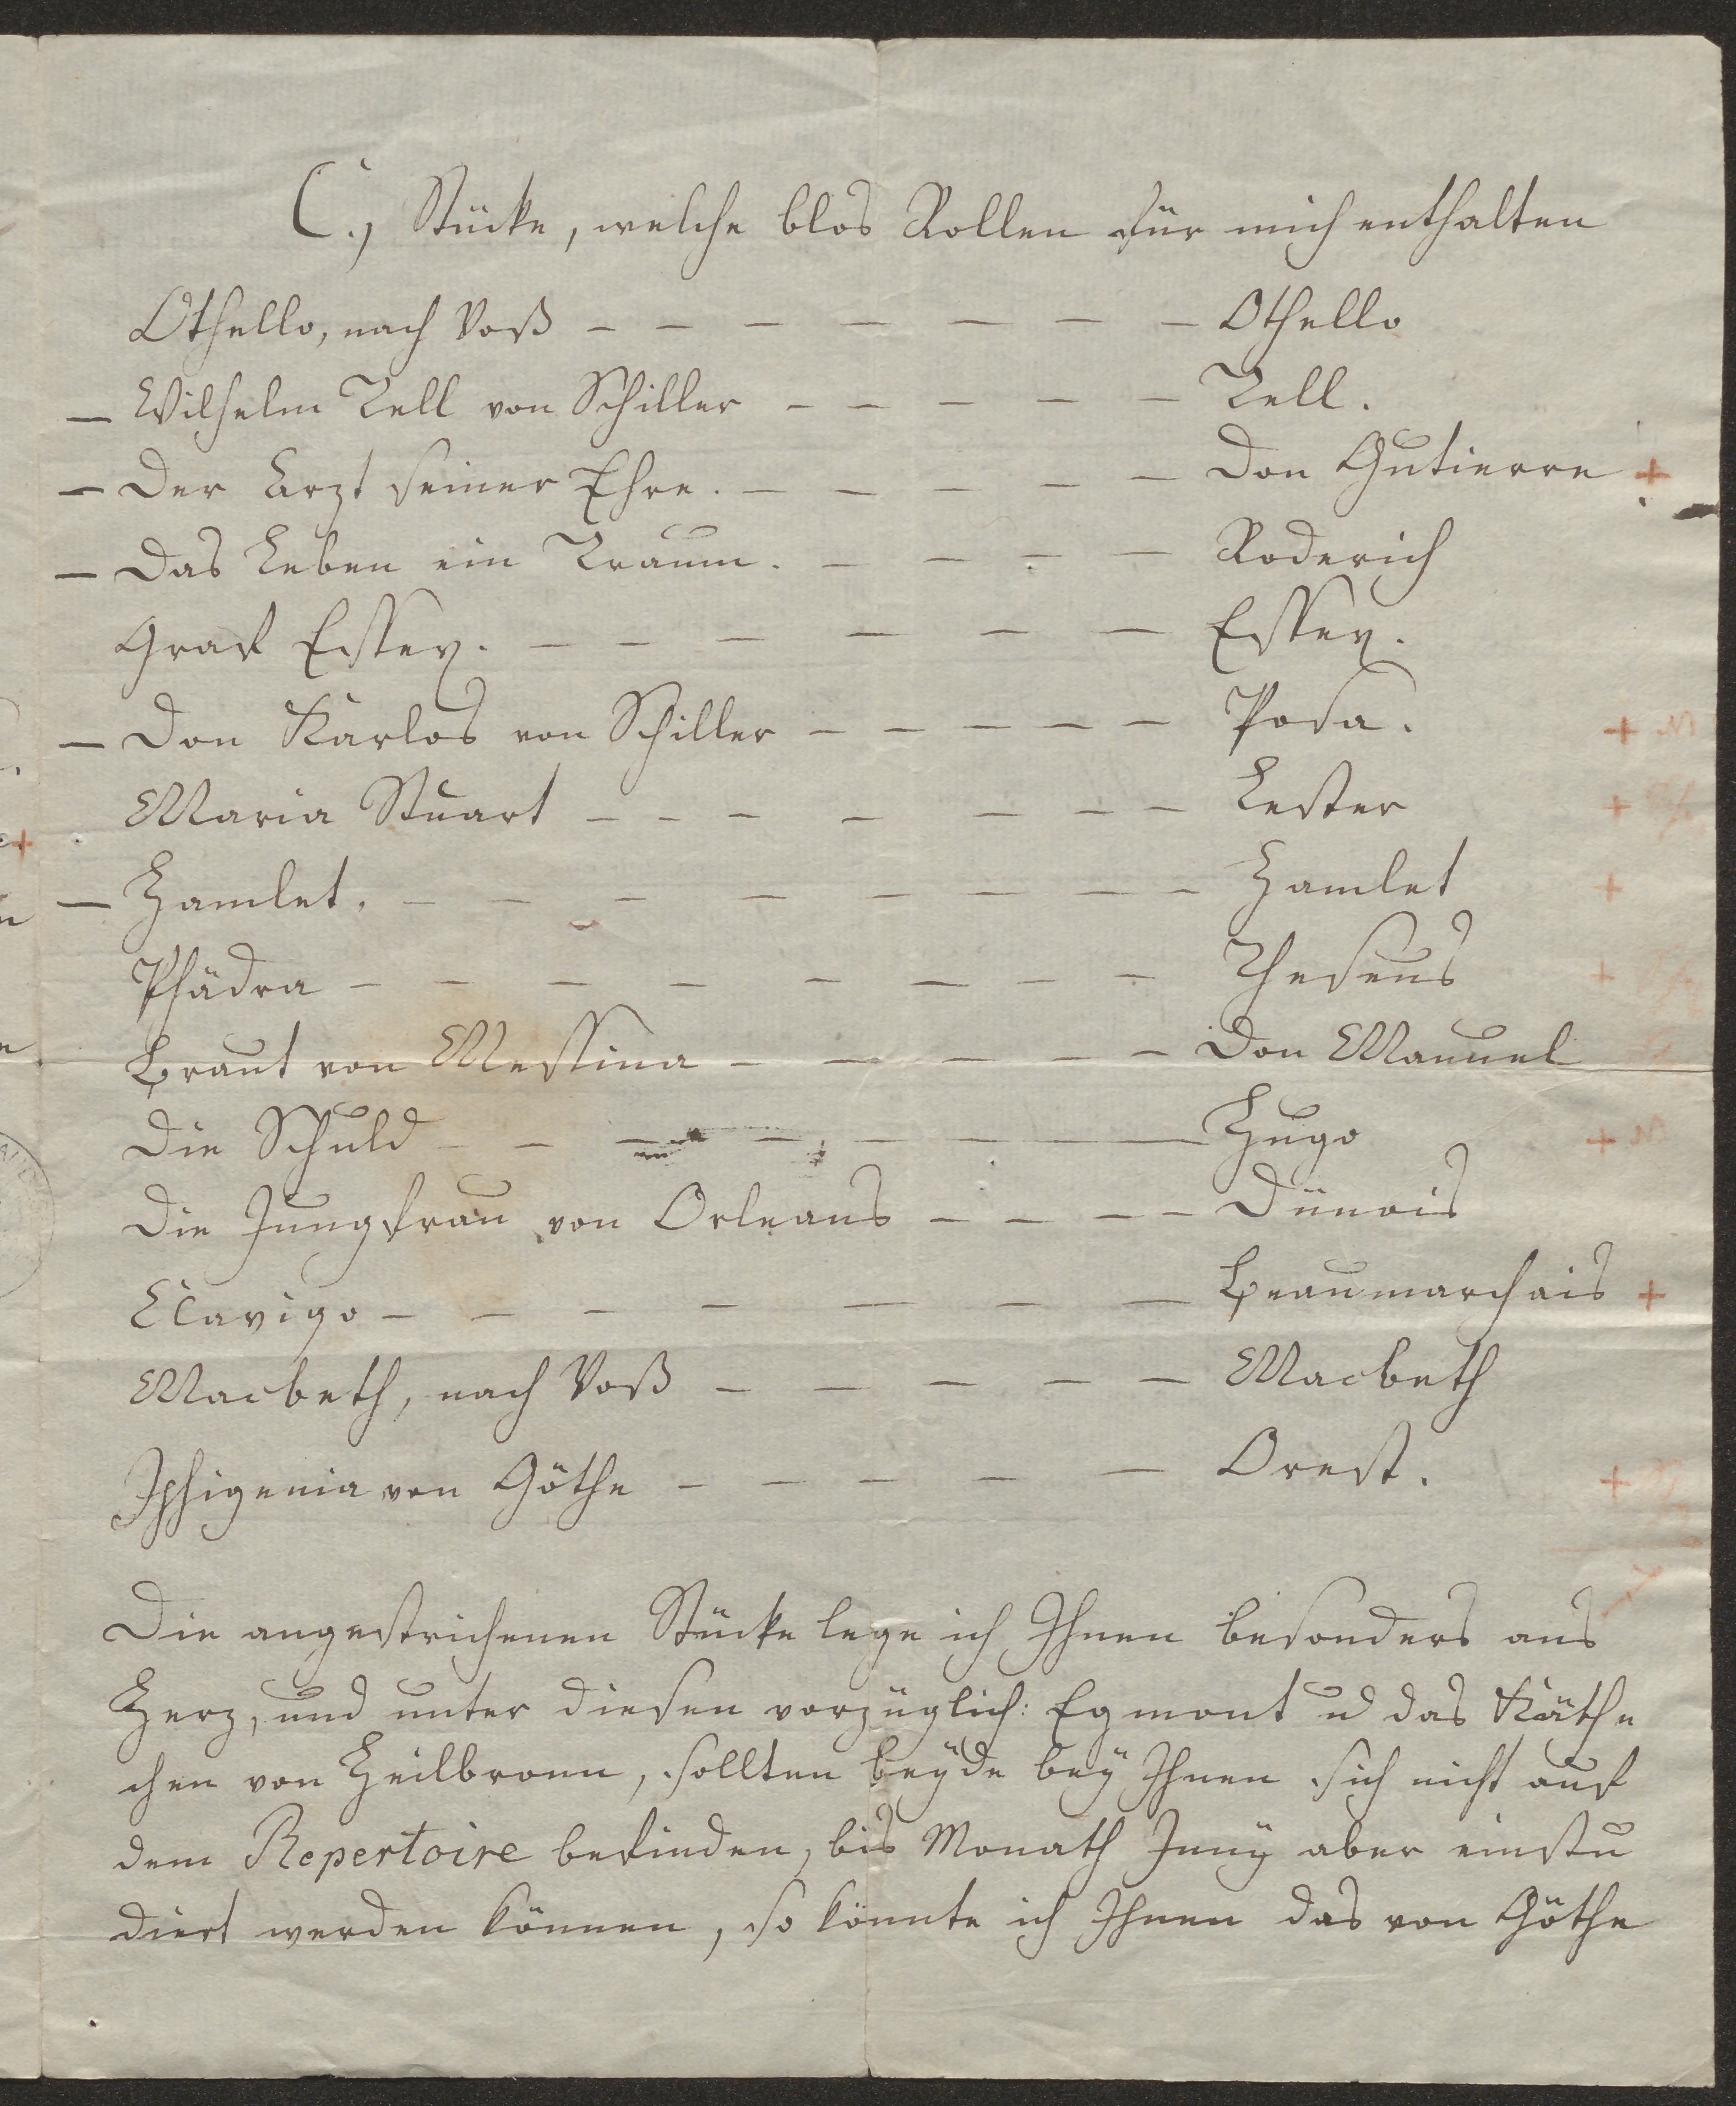 C., Stücke, welche blos Rollen für mich enthalten
Othello, nach Voß – – – – – – – Othello
– Wilhelm Tell von Schiller – – – – – Tell.
– Der Arzt seiner Ehre. – – – – – Don Gutierre +
– Das Leben ein Traum. – – – – Roderich
Graf Essex. – – – – – – Essex.
– Don Karlos von Schiller – – – – – Posa. +
Maria Stuart – – – – – – – Lester +
– Hamlet. – – – – – – – – Hamlet +
Phädra – – – – – – – – Theseus +
Braut von Messina – – – – – Don Manuel
Die Schuld – – – – – – – Hugo +
Die Jungfrau von Orleans – – – – Dünois
Clavigo – – – – – – – Beaumarchais +
Macbeth, nach Voß – – – – – Macbeth
Iphigenia von Göthe – – – – – Orest. +
Die angestrichenen Stücke lege ich Ihnen besonders ans
Herz, und unter diesen vorzüglich: Egmont u das Käthe
chen von Heilbronn, sollten beÿde beÿ Ihnen sich nicht auf
dem Repertoire befinden, bis Monath Junÿ aber einstu
diert werden können, so könnte ich Ihnen das von Göthe